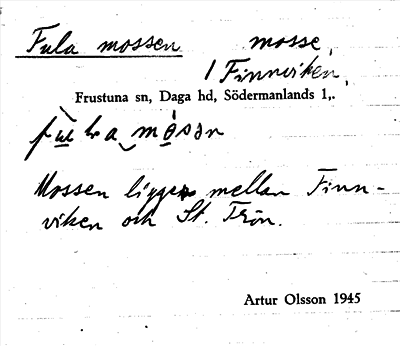 Fula mossen mosse,
/ Finnviken,
Frustuna sn, Daga hd, Södermanlands l,.
Mossen ligger mellan Finn-
viken och St. Trön.
Artur Olsson 1945